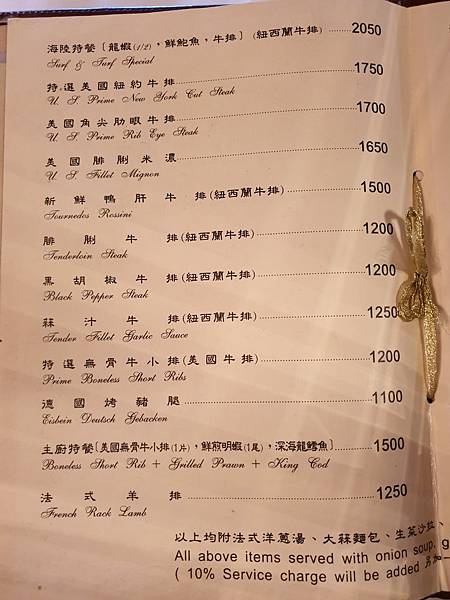 海陸特餐〔龍蝦(1/2)，鮮鮑魚，牛排〕 (紐西蘭牛排) 2050
Surf & Turf Special
特選美國紐約牛排 1750
U. S. Prime New York Cut Steak
美國角尖肋眼牛排 1700
U. S. Prime Rib Eye Steak
美國腓脷米濃 1650
U. S. Fillet Mignon
新鮮鴨肝牛排(紐西蘭牛排) 1500
Tournedos Rossini
腓脷牛排(紐西蘭牛排) 1200
Tenderloin Steak
黑胡椒牛排(紐西蘭牛排) 1200
Black Pepper Steak
蒜汁牛排(紐西蘭牛排) 1250
Tender Fillet Garlic Sauce
特選無骨牛小排(美國牛排) 1200
Prime Boneless Short Ribs
德國烤豬腿 1100
Eisbein Deutsch Gebacken
主廚特餐〔美國無骨牛小排(1片)，鮮煎明蝦(1尾)，深海龍鱈魚〕 1500
Boneless Short Rib + Grilled Prawn + King Cod
法式羊排 1250
French Rack Lamb
以上均附法式洋蔥湯、大蒜麵包、生菜沙拉、
All above items served with onion soup, g
( 10% Service charge will be added 另加一